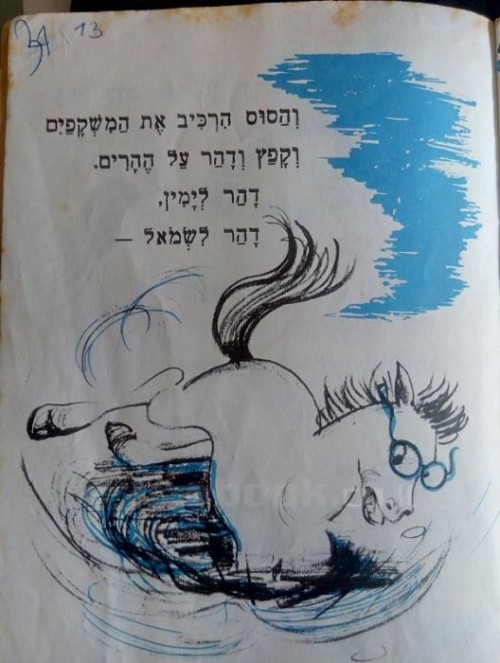 13
וְהַסּוּס הִרְכִּיב אֶת הַמִּשְׁקָפַיִם
וְקָפַץ וְדָהַר עַל הֶהָרִים.
דָהַר לְיָמִין,
דָהַר לִשְׂמֹאל –